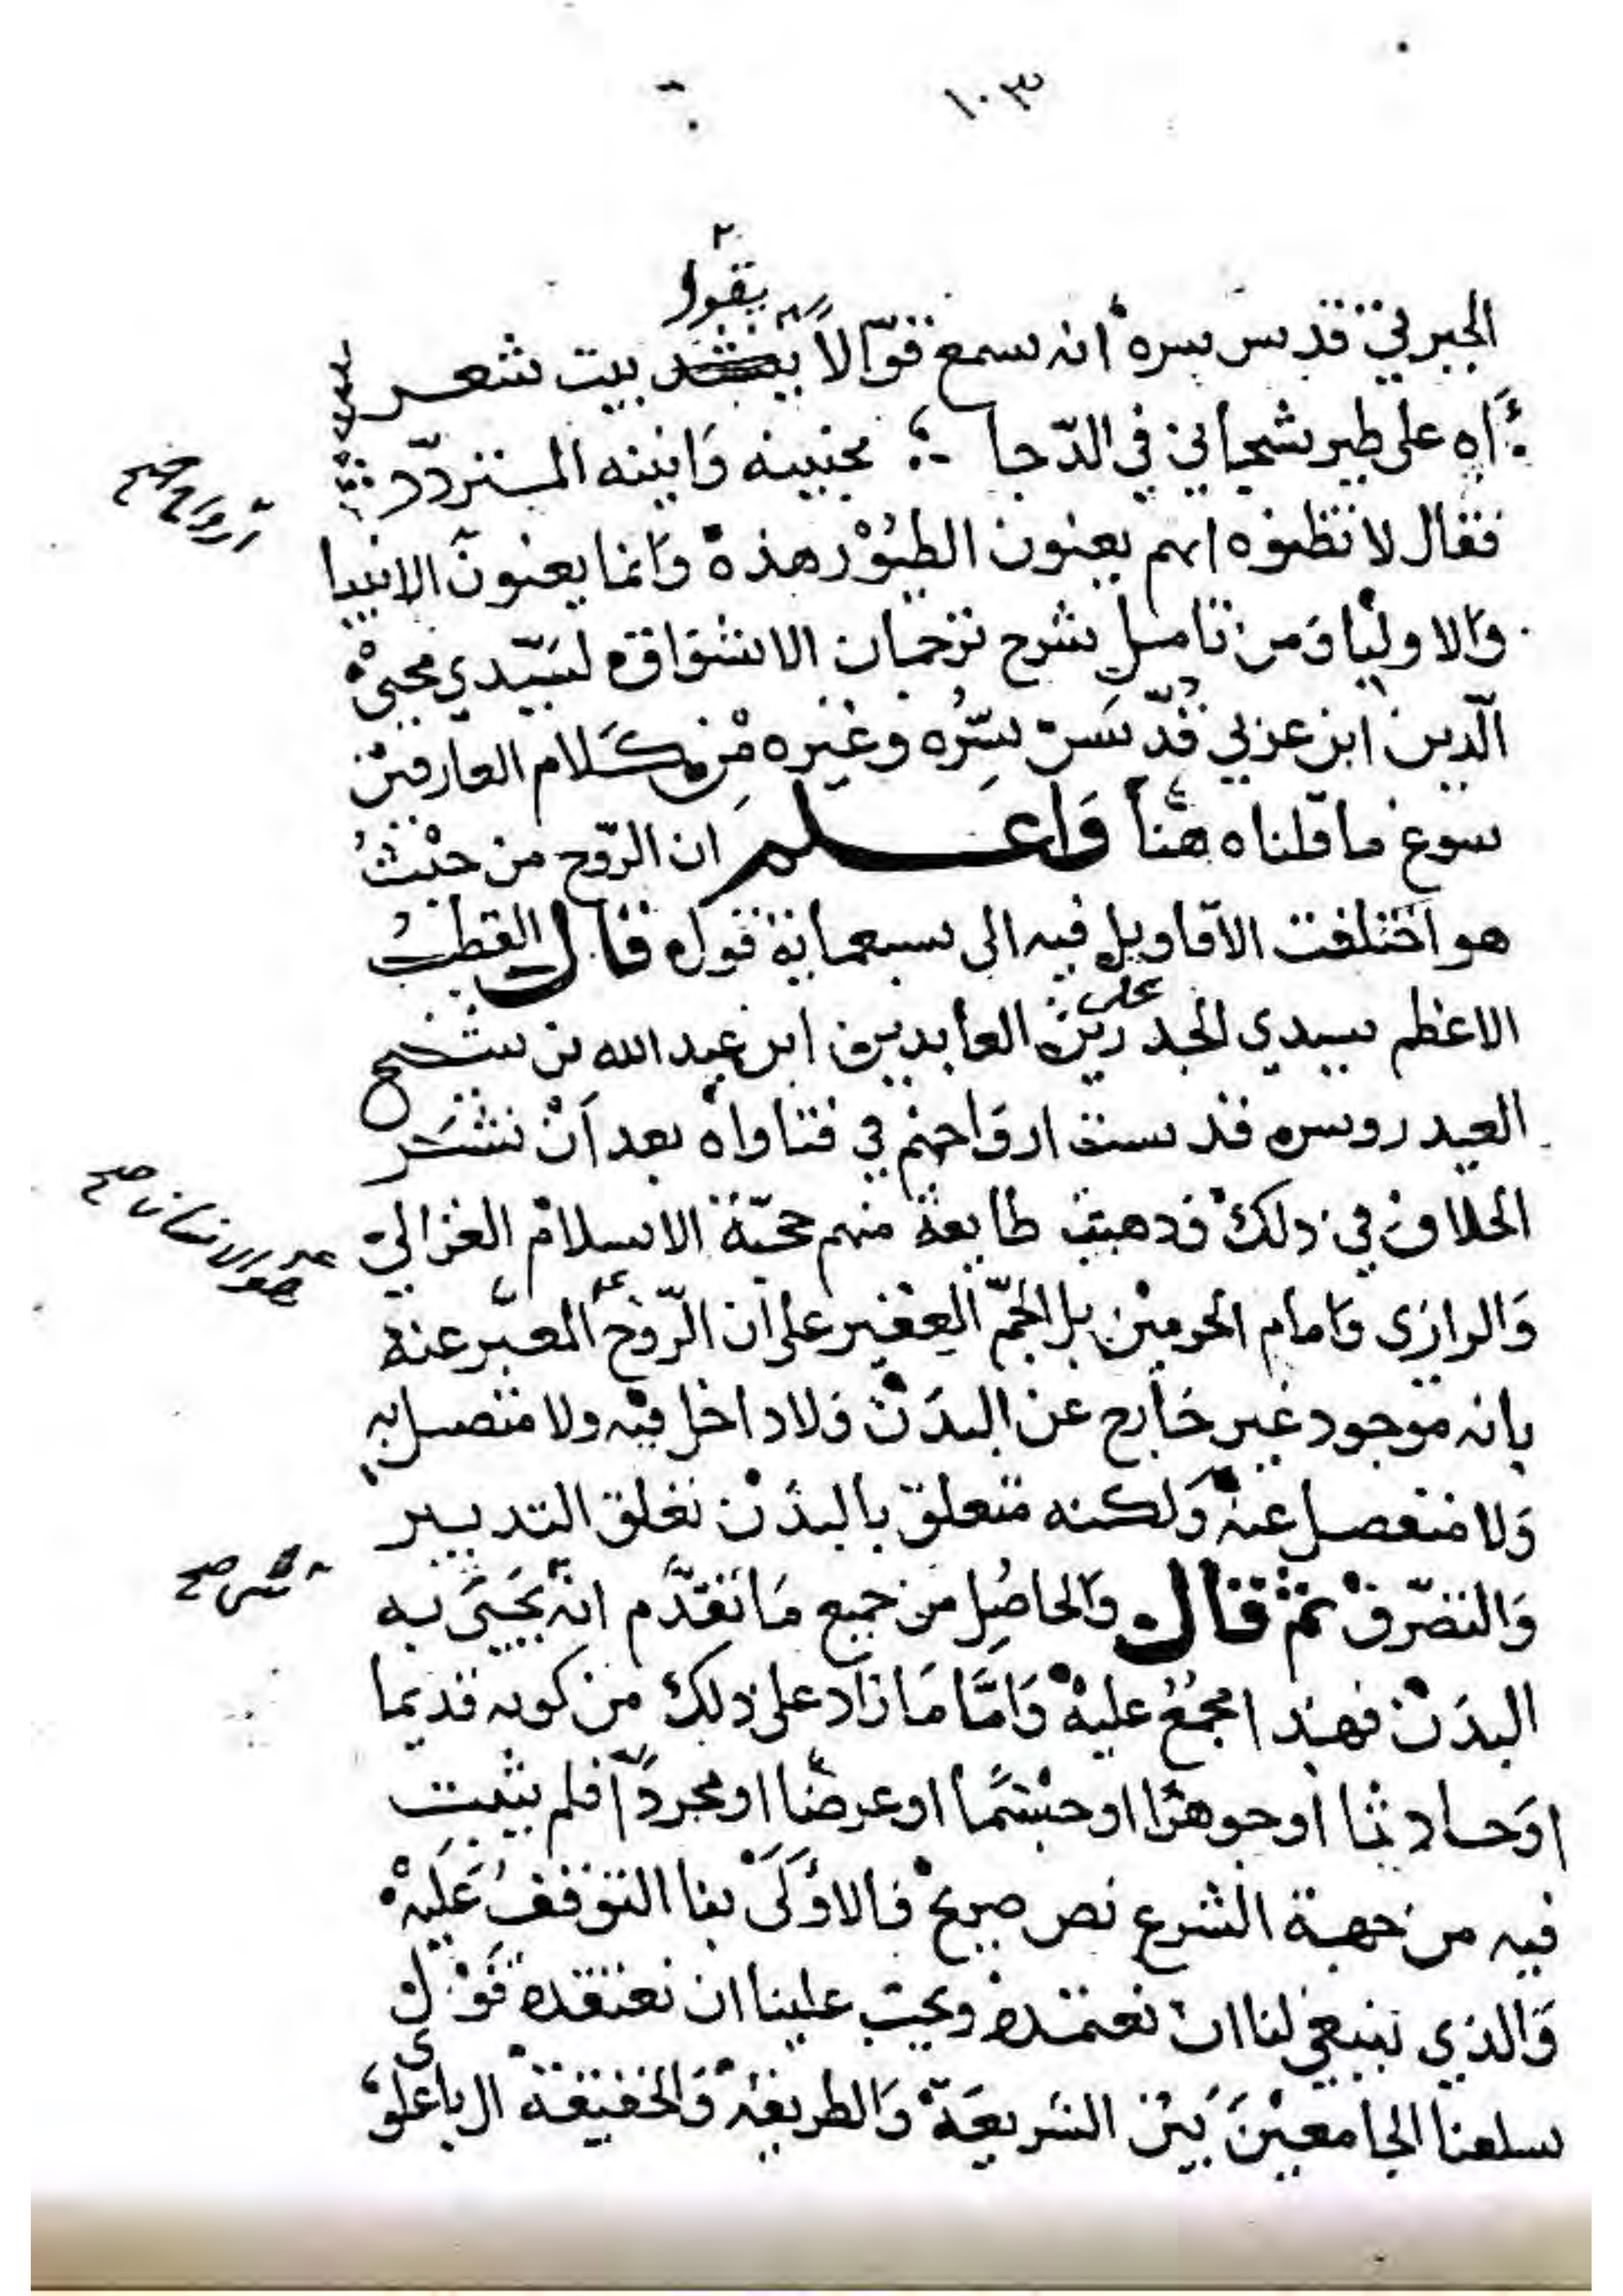 ١٠٣
٢
يقول
الجبرتي قدس سره انه سمع قوّالاً ينشد بيت شعر
آه على طير شجاني في الدّجا بحنينه وانينه المتردّد
ارواح صح
فقال لا تظنوه انهم يعنون الطيور هذه وانما يعنون الانبيا
والاوليا ومن تامل شرح ترجمان الاشواق لسيّدي محيي
الدين ابن عربي قدّس سرّه وغيره من كلام العارفين
سوغ ما قلناه هنا واعلم ان الروح من حيث
هو اختلفت الاقاويل فيه الى سبعماية قول قال القطب
على
الاعظم سيدي الجد زين العابدين ابن عبد الله بن شيخ
العيدروس قدست ارواحهم في فتاواه بعد ان نشر
الخلاف في ذلك فذهبت طايفة منهم حجّة الاسلام الغزالي
هو الانسان صح
والرازي وامام الحرمين بل الجمّ الغفير على ان الرّوح المعبّر عنه
بانه موجود غير خارج عن البدن ولا داخل فيه ولا متصل به
ولا منفصل عنه ولكنه متعلق بالبدن تعلق التدبير
والتصرّف ثم قال والحاصل من جميع ما تقدّم انه يحيى به
البدن فهذا مجمع عليه وامّا ما زاد على ذلك من كونه قديما
او حادثا او جوهرا او جسما او عرضا او مجردا فلم يثبت
فيه من جهة الشرع نص صريح فالاولى بنا التوقف عليه
والذي ينبغي لنا ان نعتمده ويجب علينا ان نعتقده قول
سلفنا الجامعين بين الشريعة والطريقة والحقيقة ال باعلوي